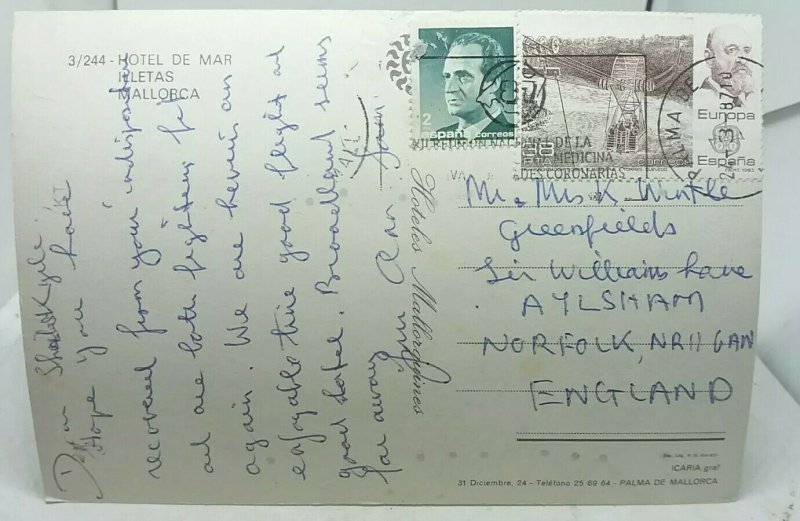 3/244 - HOTEL DE MAR
ILLETAS
MALLORCA
Hope you have
recovered from your indisposition
and are both fighting fit
again. We are having an
enjoyable time good flight and
good hotel. Broadland seems
far away
Jim Ann
Hoteles Mallorquines
2
españa correos
Europa
España
correos
PALMA DE
XII REUNION NAL DE LA
MEDICINA
DES CORONARIAS
Mr & Mrs K. Wintle
Greenfields
Sir Williams Lane
AYLSHAM
NORFOLK, NR11 6AN
ENGLAND
ICARIA graf
31 Diciembre, 24 - Teléfono 25 69 64 - PALMA DE MALLORCA